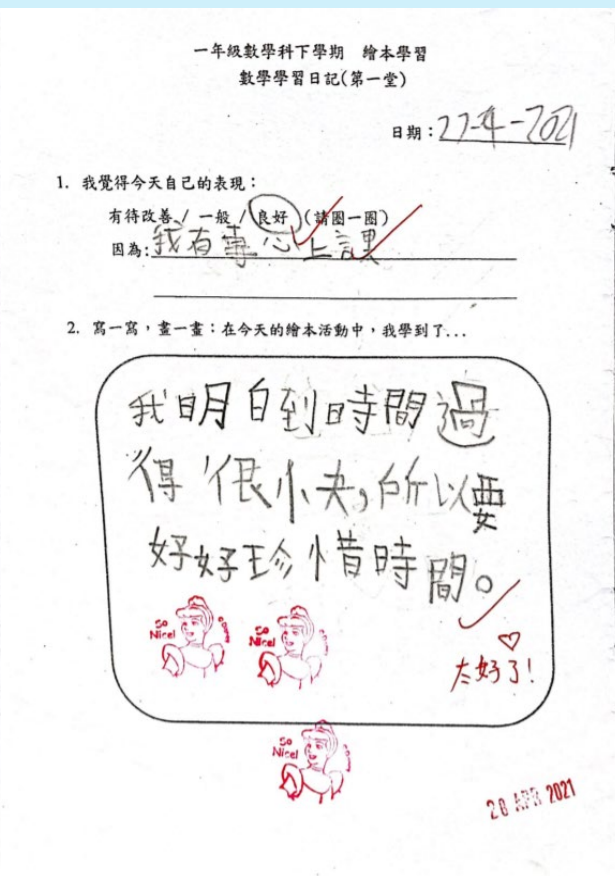 一年級數學科下學期　繪本學習
數學學習日記(第一堂)
日期：27-4-2021
1. 我覺得今天自己的表現：
有待改善 / 一般 / 良好 (請圈一圈)
因為：我有專心上課
2. 寫一寫，畫一畫：在今天的繪本活動中，我學到了...
我明白到時間過
得很快，所以要
好好珍惜時間。
So Nice!
So Nice!
太好了!
So Nice!
28 APR 2021